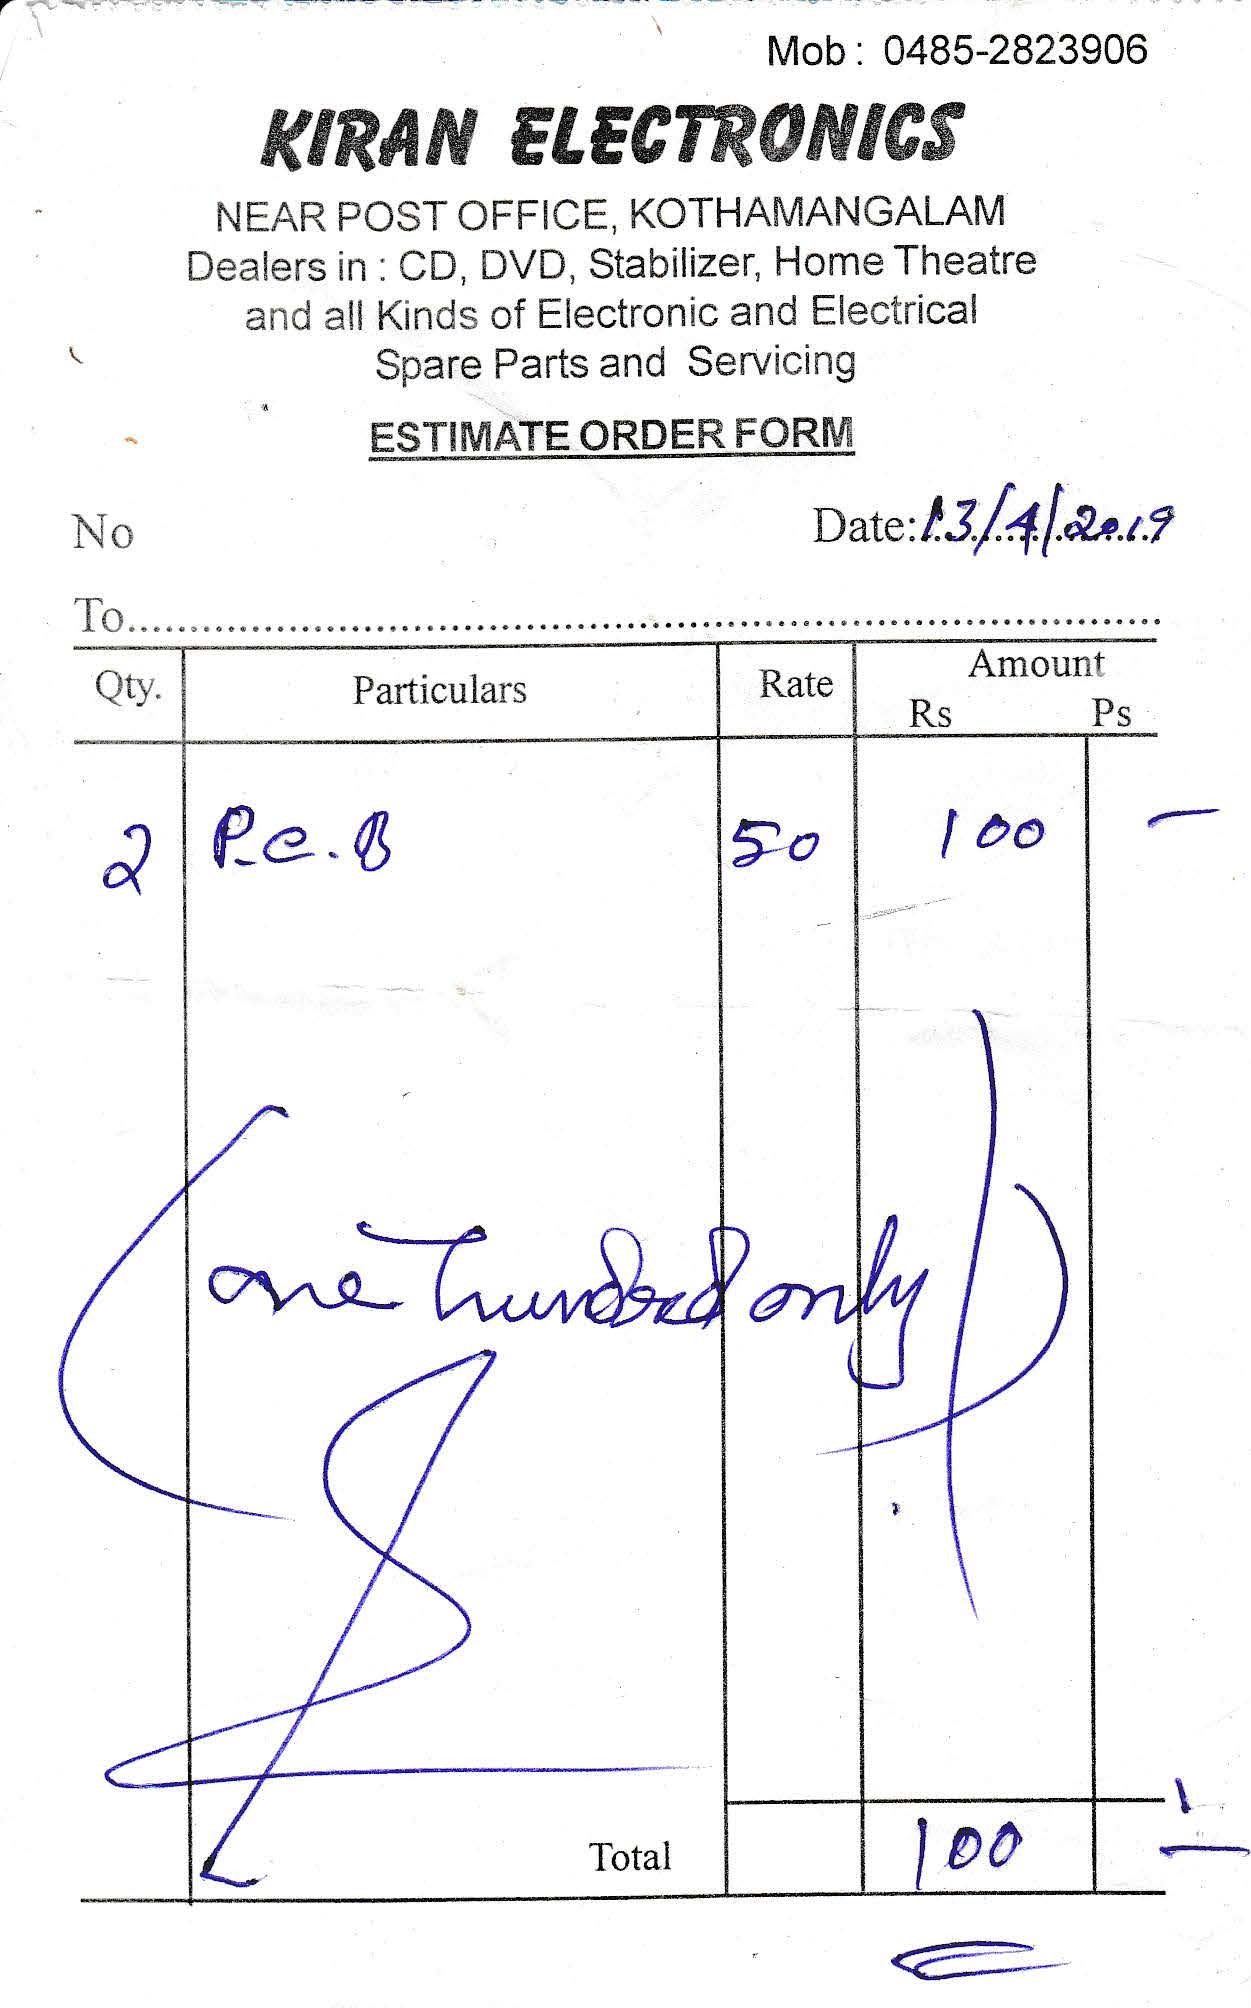 Mob : 0485-2823906
KIRAN ELECTRONICS
NEAR POST OFFICE, KOTHAMANGALAM
Dealers in : CD, DVD, Stabilizer, Home Theatre
and all Kinds of Electronic and Electrical
Spare Parts and Servicing
ESTIMATE ORDER FORM
No Date: 13/4/2019
To
Qty. Particulars Rate Amount
Rs Ps
2 P.C.B 50 100 —
(one hundred only)
Total 100 —